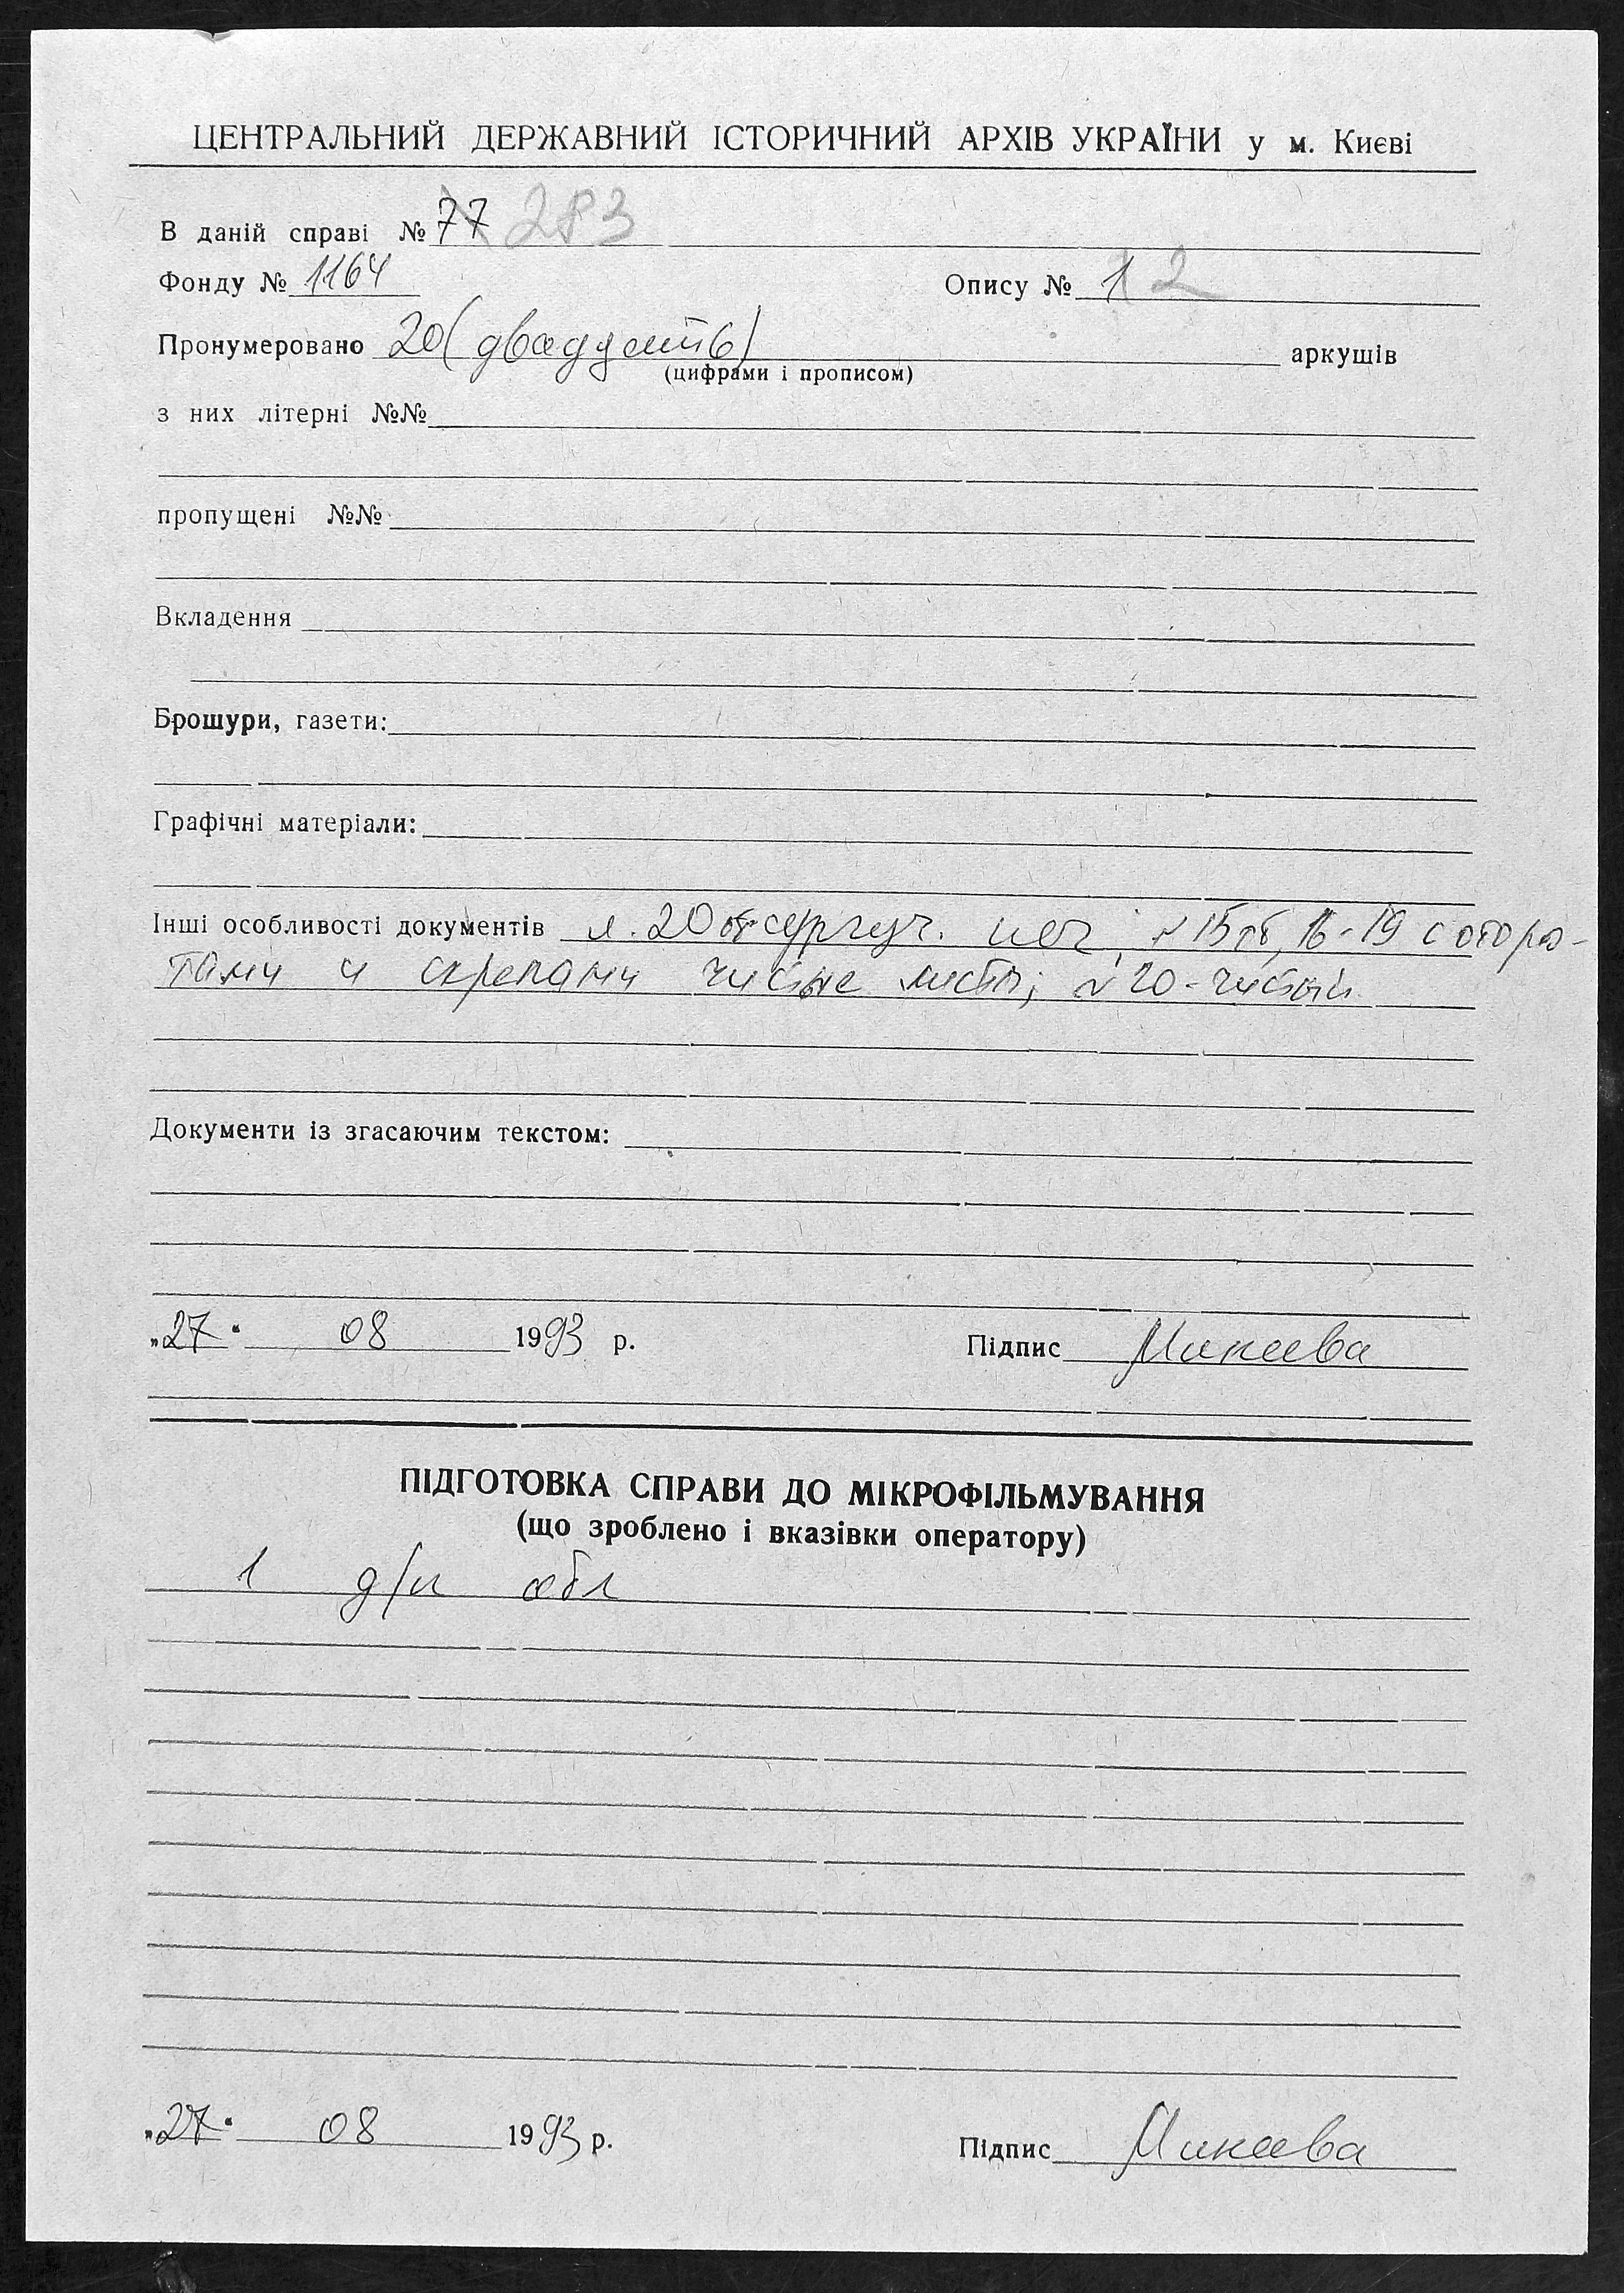 ЦЕНТРАЛЬНИЙ ДЕРЖАВНИЙ ІСТОРИЧНИЙ АРХІВ УКРАЇНИ у м. Києві
В даній справі № 77 283
Фонду № 1164 Опису № 1 2
Пронумеровано 20 (двадцять) аркушів
(цифрами і прописом)
з них літерні №№
пропущені №№
Вкладення
Брошури, газети:
Графічні матеріали:
Інші особливості документів л. 20 сургуч. печ; л 15об, 16-19 с оборо-
тами и скрепами чистые листы; л 20 - чистый
Документи із згасаючим текстом:
„27“ 08 1993 р. Підпис
ПІДГОТОВКА СПРАВИ ДО МІКРОФІЛЬМУВАННЯ
(що зроблено і вказівки оператору)
1 д/и обл
„27“ 08 1993 р. Підпис